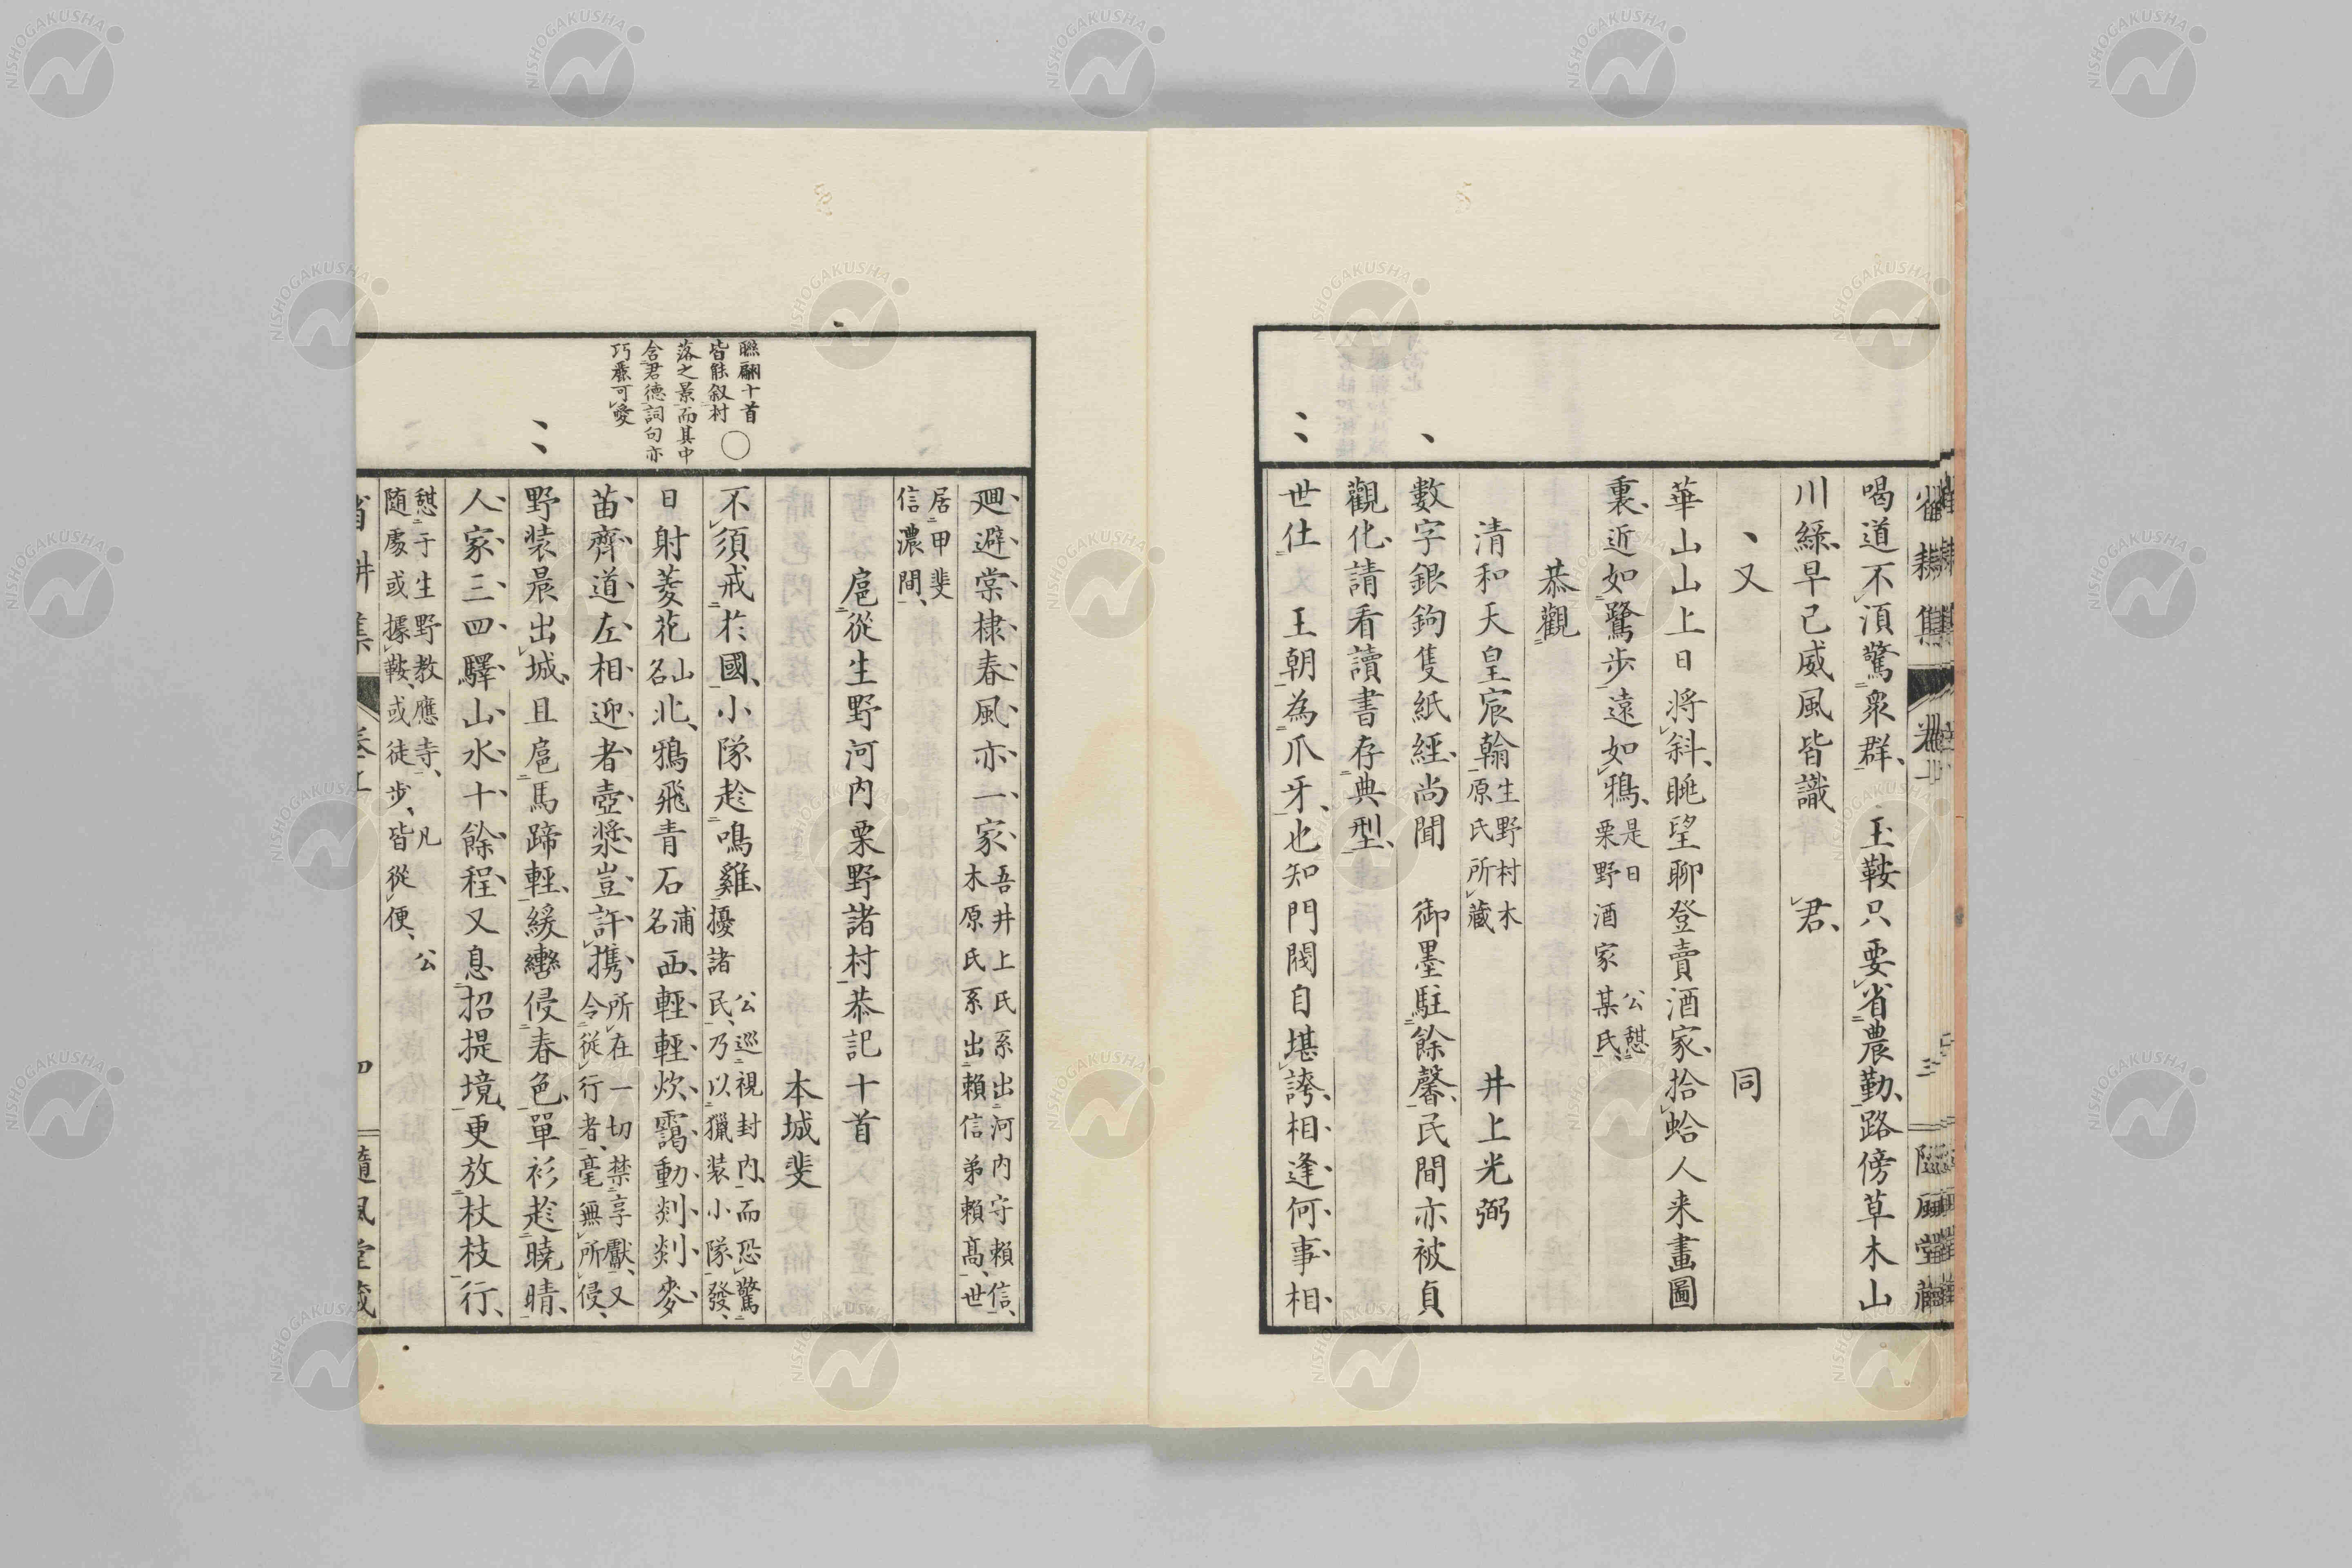 喝道不湏驚衆群玉鞍只要省農勤路傍草木山
川綠早已威風皆識君
又 同
華山山上日將斜眺望聊登賣酒家拾蛤人来畫圖
裏近如鷺步遠如鴉是日公憇
栗野酒家某氏
恭觀
清和天皇宸翰生野村木
原氏所藏 井上光弼
數字銀鉤隻紙經尚聞御墨駐餘馨民間亦被貞
觀化請看讀書存典型
世仕王朝為爪牙也知門閥自堪誇相逢何事相
廻避棠棣春風亦一家吾井上氏系出河内守賴信
木原氏系出賴信弟賴髙世
居甲斐
信濃間
扈從生野河内栗野諸村恭記十首
本城斐
不須戒於國小隊趁鳴雞擾諸民公巡視封内而恐驚
乃以獵装小隊發
日射菱花山名北鴉飛青石浦名西輕輕炊靄動剡剡麥
苗齊道左相迎者壺漿豈許携所在一切禁享獻又
令從行者毫無所侵
野装晨出城且扈馬蹄輕緩轡侵春色單衫趁曉晴
人家三四驛山水十餘程又息招提境更放杖枝行
憇于生野教應寺凡公
随處或據鞍或徒步皆從便
聮翩十首
皆能叙村
落之景而其中
含君德詞句亦
巧麗可愛
NISHOGAKUSHA